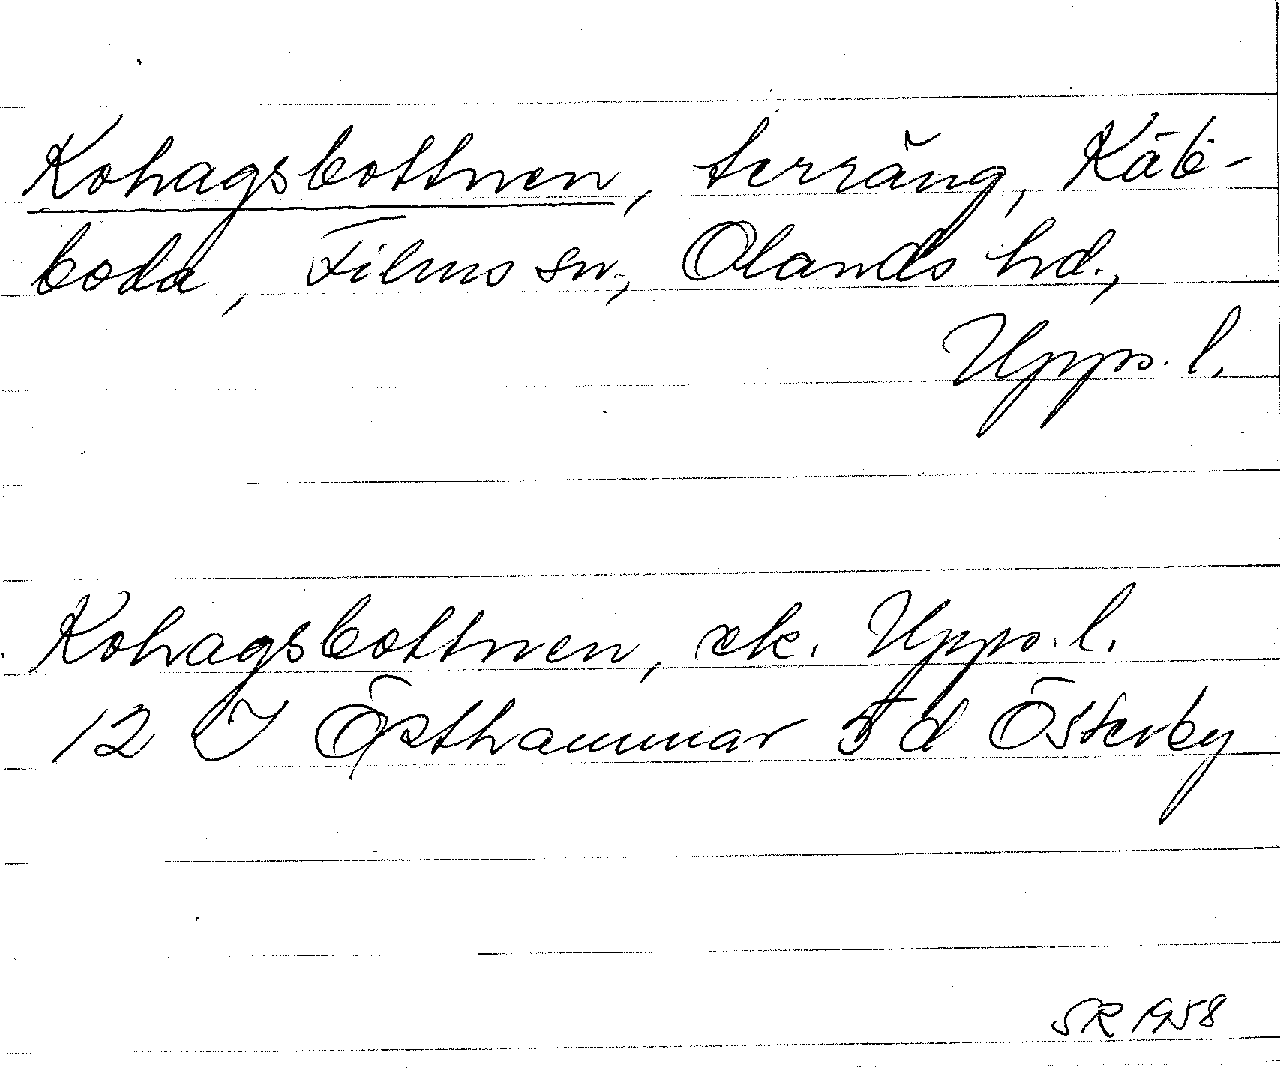 Kohagsbottnen, terräng, Käb-
boda, Films sn, Olands hd.,
Upps. l.
Kohagsbottnen, ek. Upps. l.
12 I Östhammar 5 d Österby
SR 1958